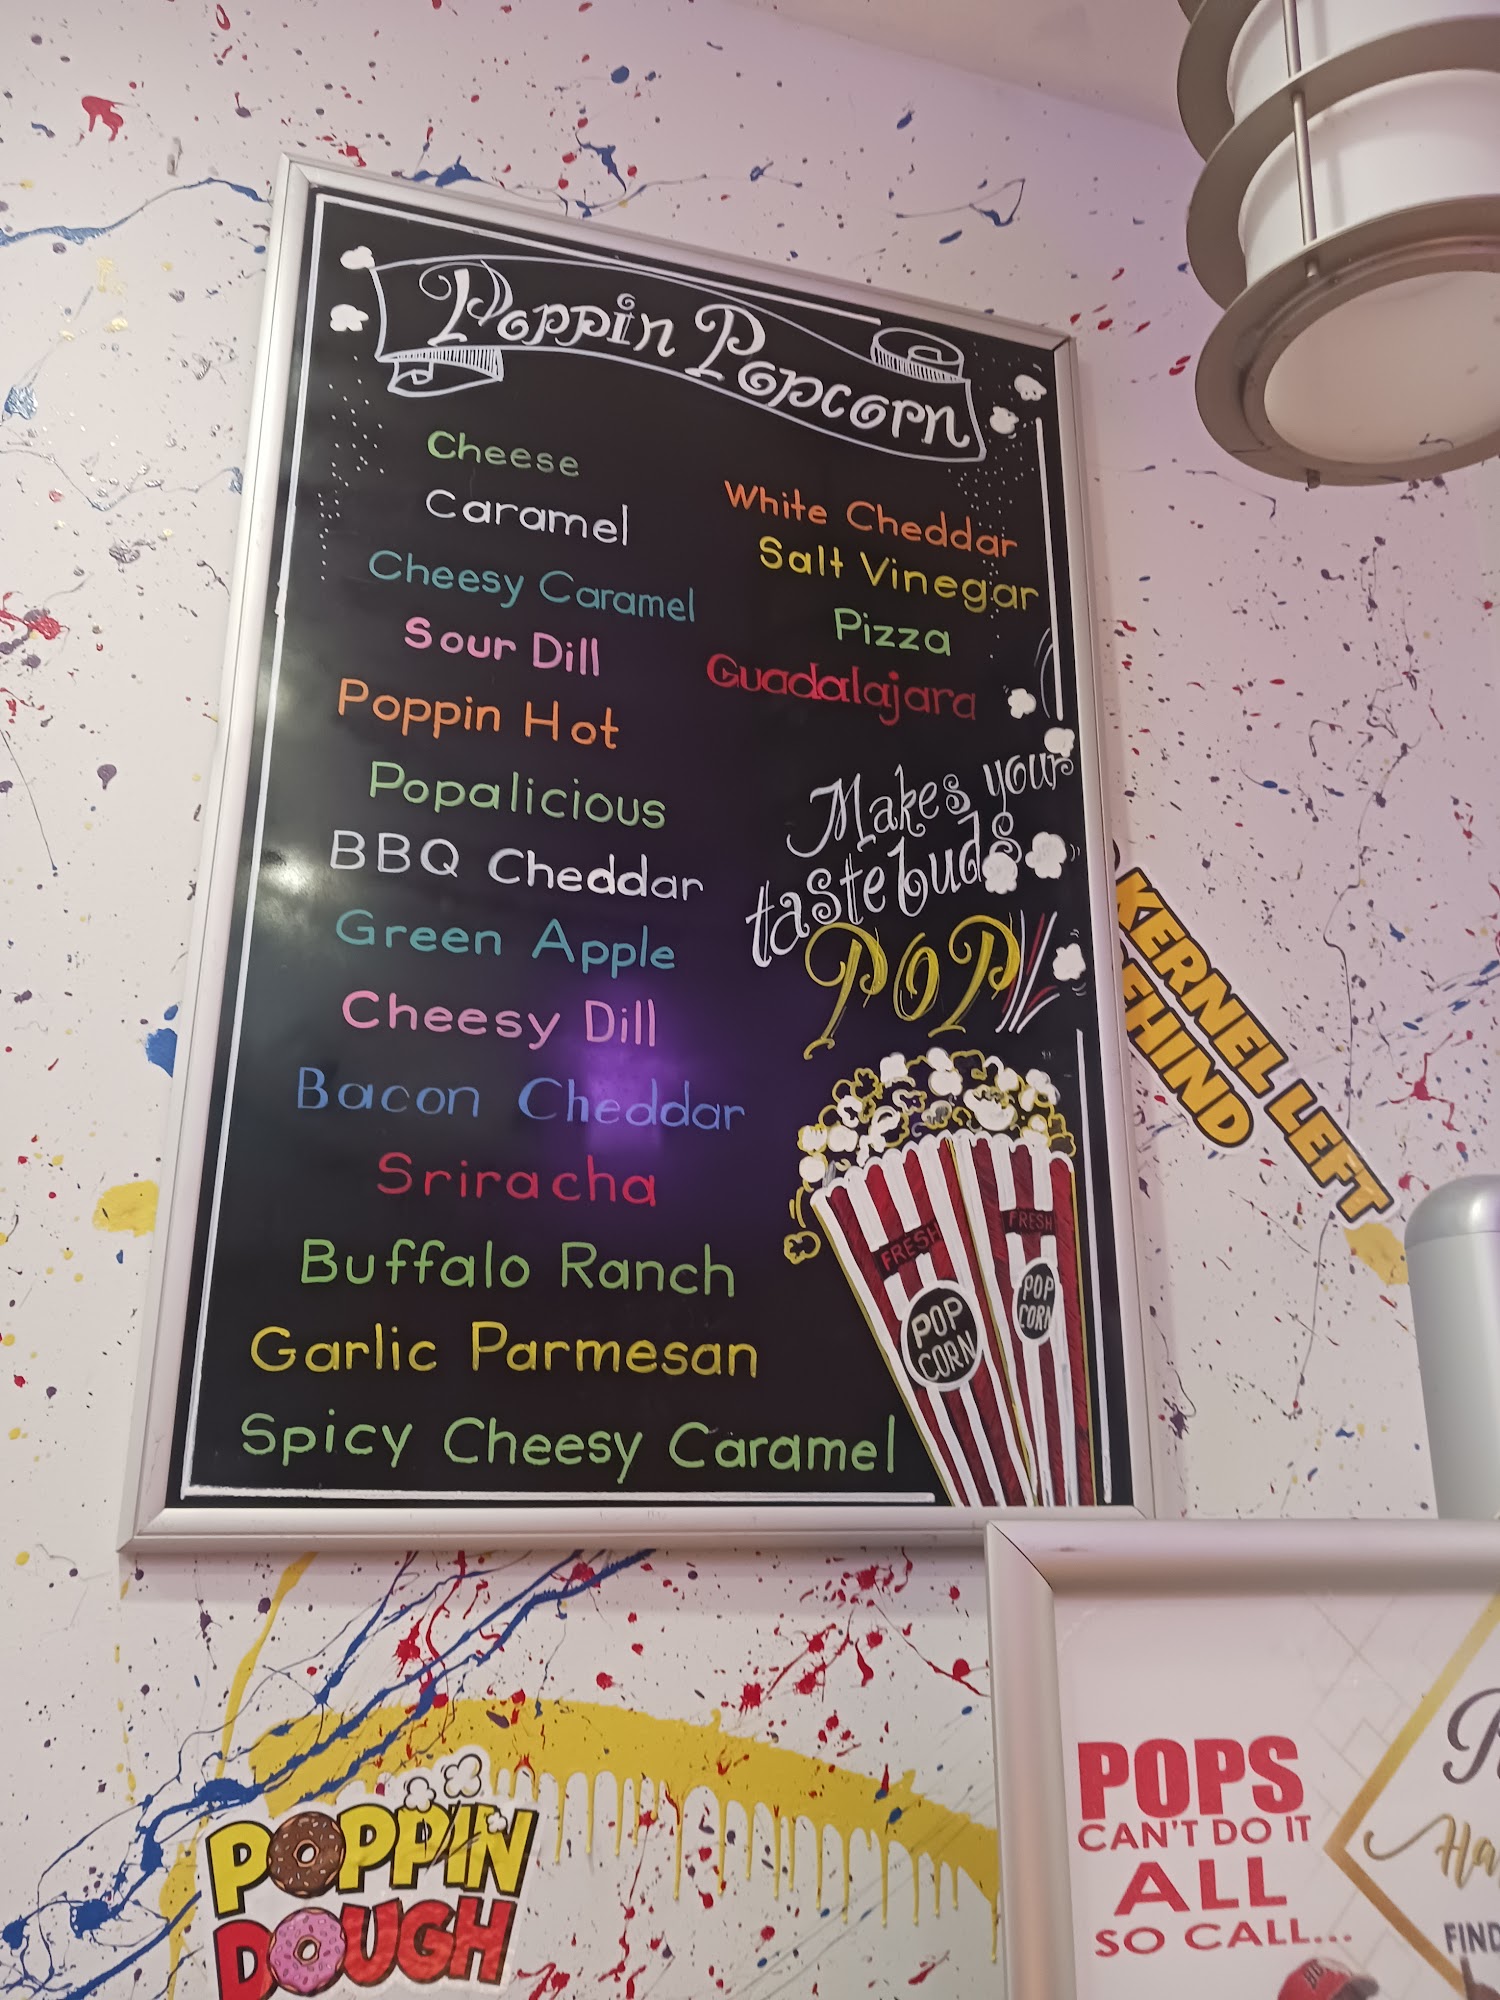 Poppin Popcorn
Cheese
Caramel
Cheesy Caramel
Sour Dill
Poppin Hot
Popalicious
BBQ Cheddar
Green Apple
Cheesy Dill
Bacon Cheddar
Sriracha
Buffalo Ranch
Garlic Parmesan
Spicy Cheesy Caramel
White Cheddar
Salt Vinegar
Pizza
Guadalajara
Makes your
tastebuds
POP
FRESH
POP
CORN
FRESH
POP
CORN
KERNEL LEFT
POPPIN
DOUGH
POPS
CAN'T DO IT
ALL
SO CALL...
FIND